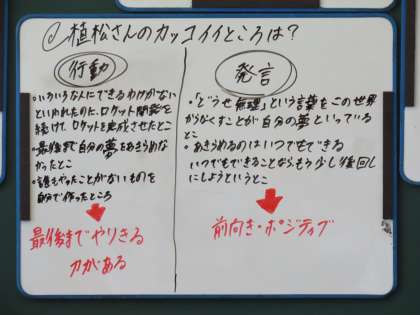 植松さんのカッコイイところは?
行動
といわれたのに、ロケット開発を
続けて、ロケットを完成させたところ
・最後まで自分の夢をあきらめな
かったとこ
・誰もやったことがないものを
自分で作ったところ
最後までやりきる
力がある
発言
・「どうせ無理」という言葉をこの世界
からなくすことが自分の夢といっている
とこ
・あきらめるのはいつでもできる
いつでもできることならもう少し後回し
にしようというとこ
前向き・ポジティブ